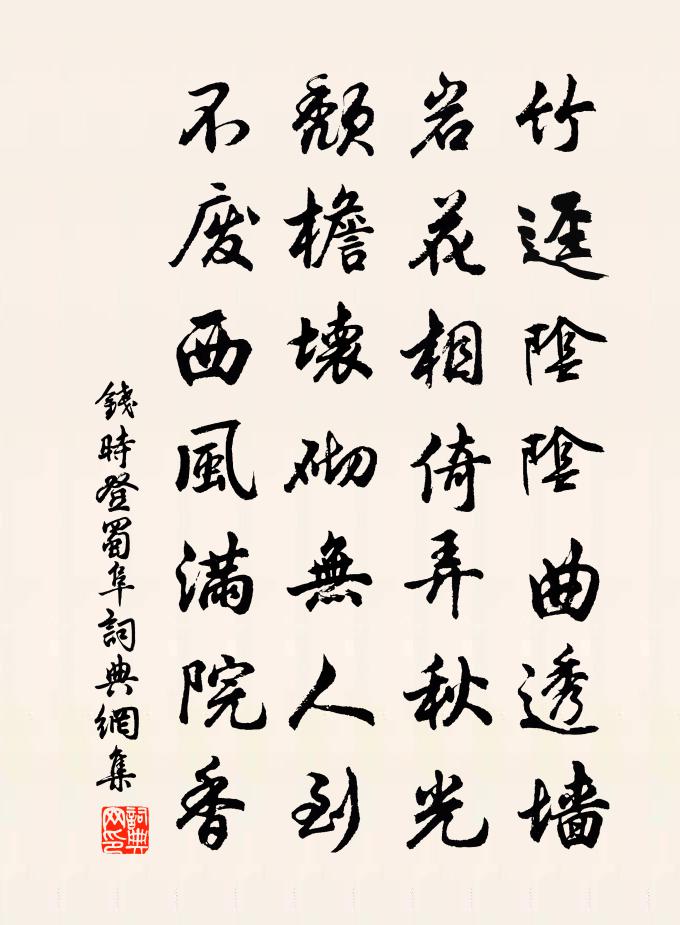 竹逕陰陰曲透墙
岩花相倚弄秋光
頽檐壊砌無人到
不废西風满院香
錢時登蜀阜詞典網集
詞典網印